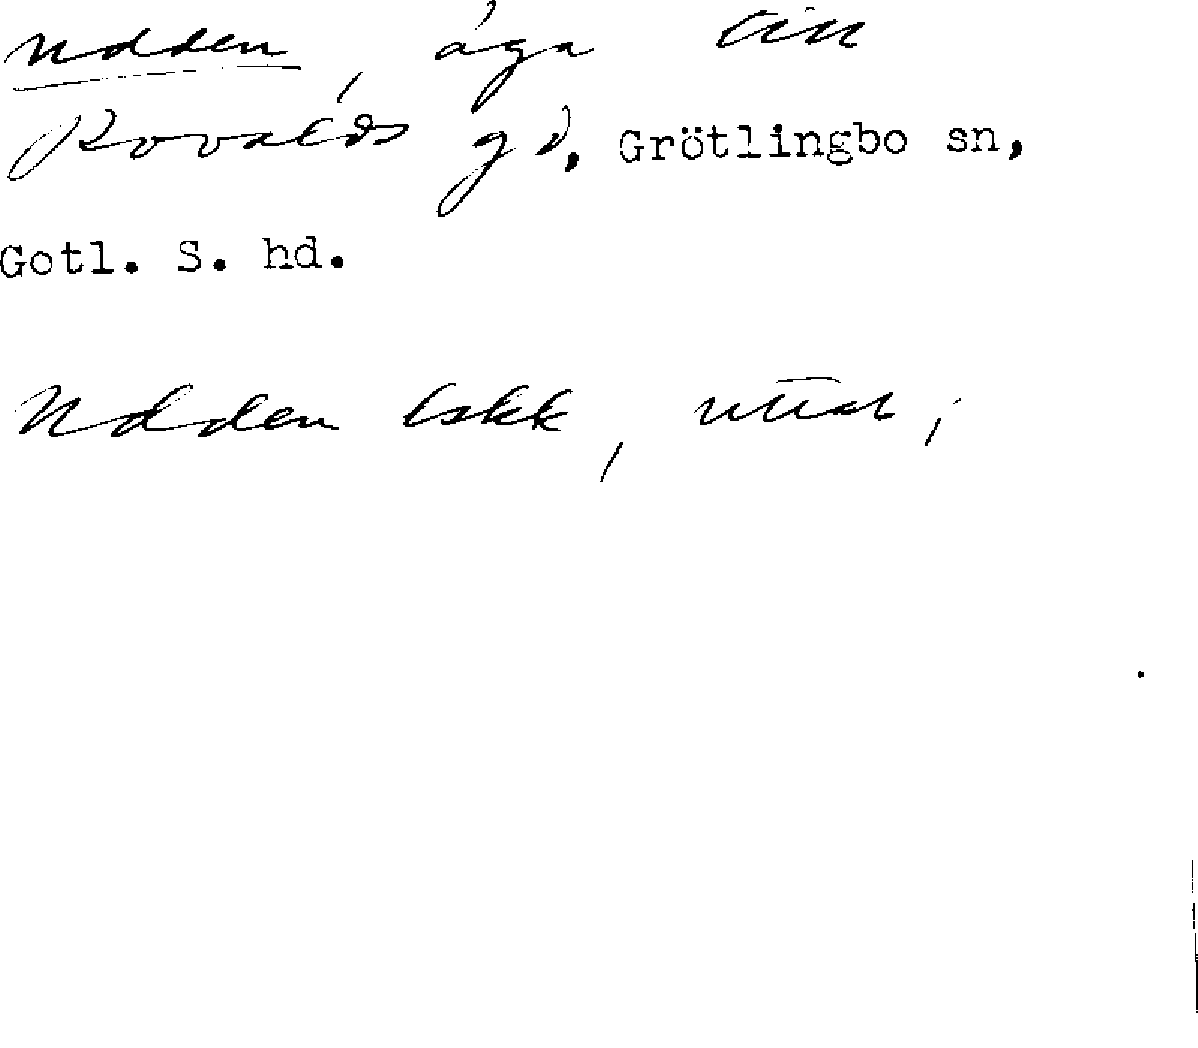 Udden, äga till
Rovalds gd, Grötlingbo sn,
Gotl. S. hd.
Udden Lskk,